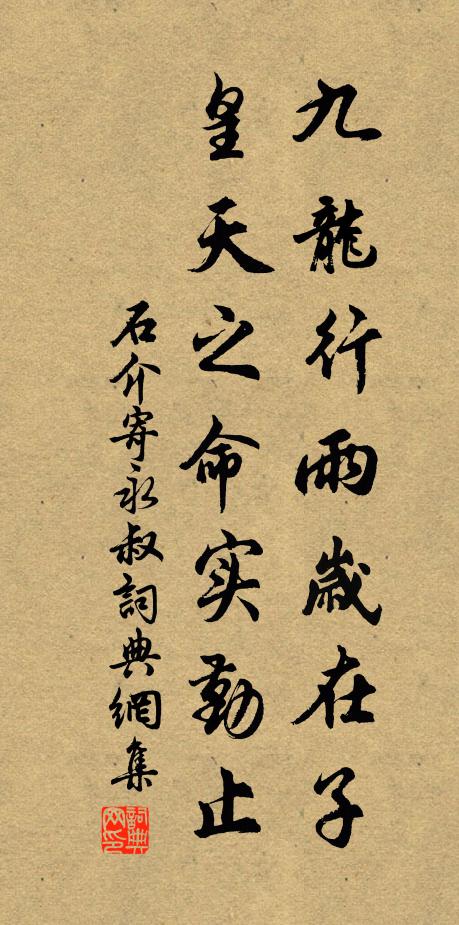 九龍行雨歲在子
皇天之命实勤止
石介寄永叔詞典網集
詞典網印